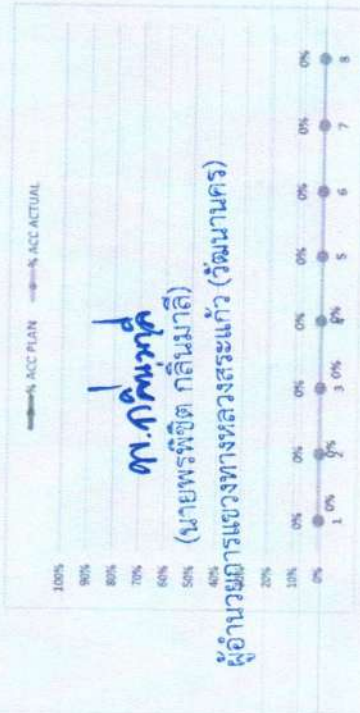 % ACC PLAN % ACC ACTUAL
100%
90%
80%
70%
60%
50%
40%
30%
20%
10%
0%
0% 0% 0% 0% 0% 0% 0% 0%
0% 0% 0% 0%
1 2 3 4 5 6 7 8
(นายพรพิชิต กลิ่นมาลี)
ผู้อำนวยการแขวงทางหลวงสระแก้ว (วัฒนานคร)